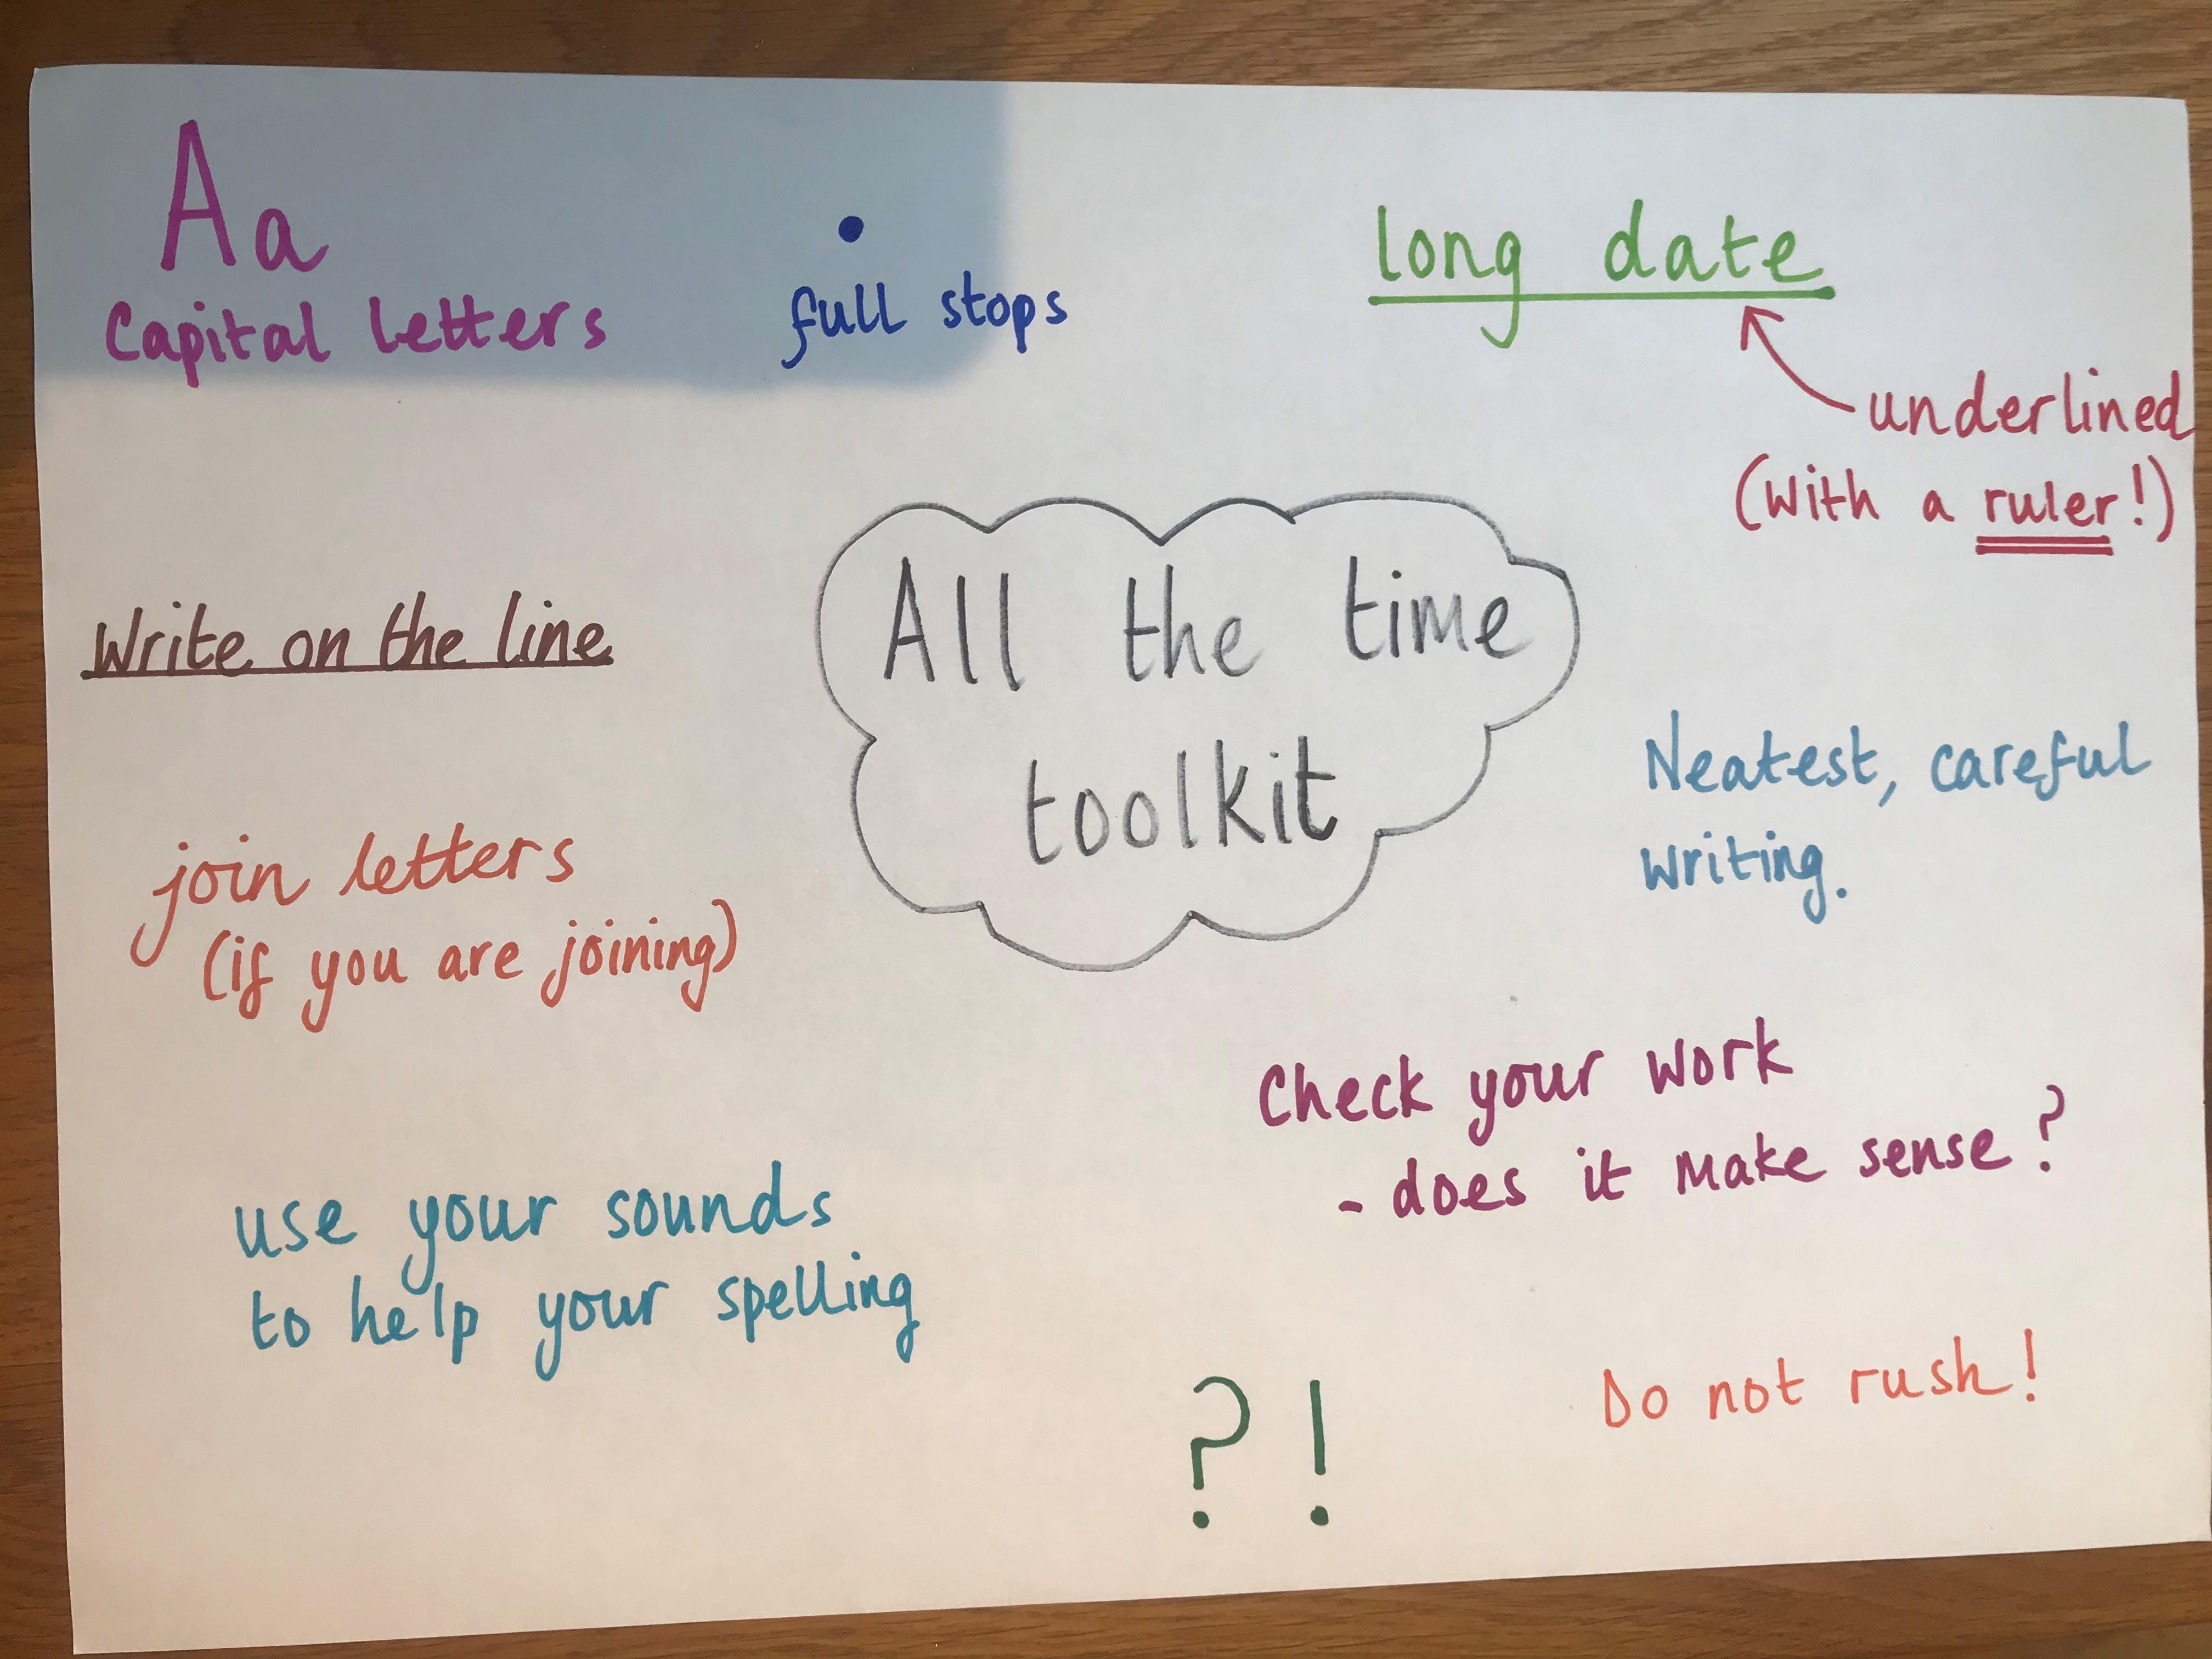 Aa
Capital letters
•
full stops
long date
underlined
(with a ruler!)
All the time
toolkit
Write on the line
Neatest, careful
writing.
join letters
(if you are joining)
Check your work
- does it make sense?
use your sounds
to help your spelling
Do not rush!
? !